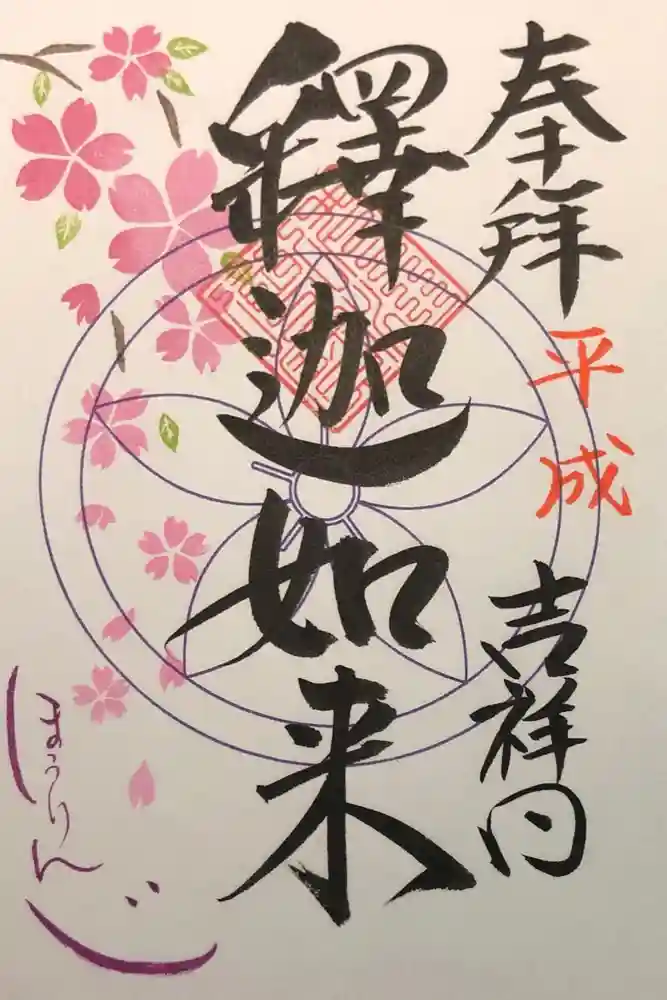 奉拝
平成
吉祥日
釋迦如来
ほうりんじ